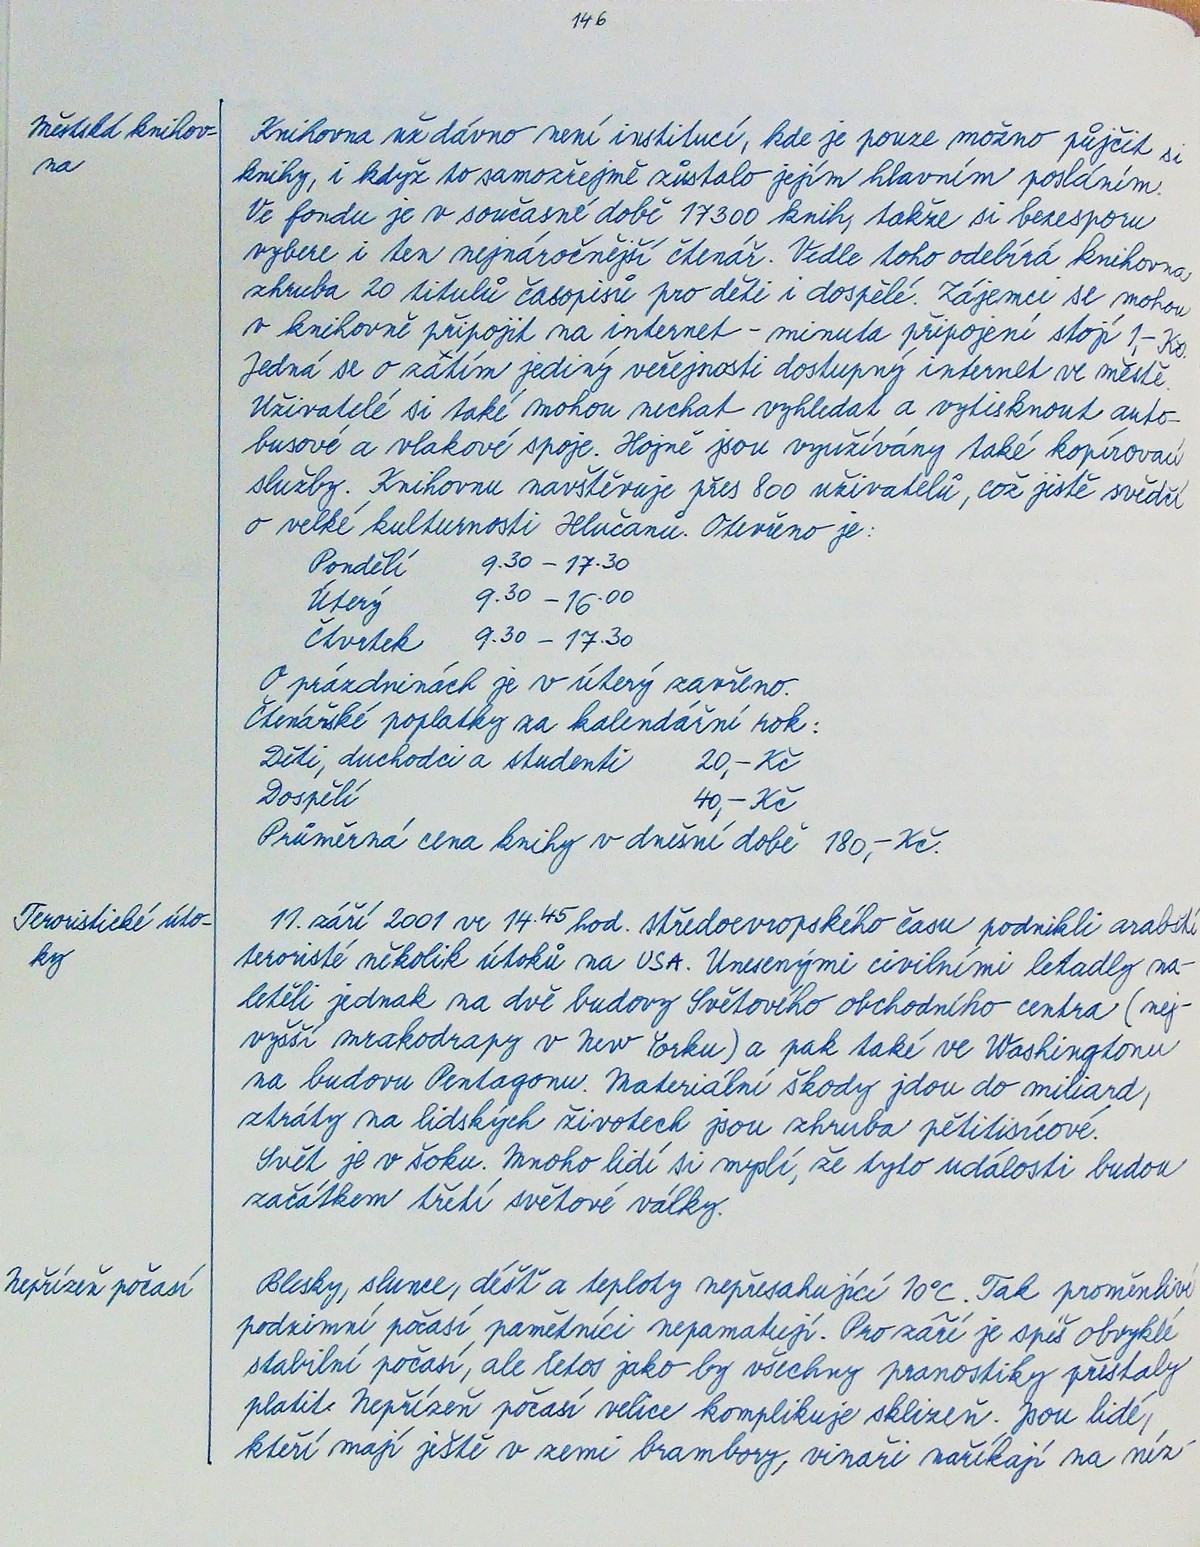 146
Městská knihov-
na
Knihovna už dávno není institucí, kde je pouze možno půjčit si
knihy, i když to samozřejmě zůstalo jejím hlavním posláním.
Ve fondu je v současné době 17300 knih, takže si bezesporu
vybere i ten nejnáročnější čtenář. Vedle toho odebírá knihovna
zhruba 20 titulů časopisů pro děti i dospělé. Zájemci se mohou
v knihovně připojit na internet - minuta připojení stojí 1,- Kč.
Jedná se o zatím jediný veřejnosti dostupný internet ve městě.
Uživatelé si také mohou nechat vyhledat a vytisknout auto-
busové a vlakové spoje. Hojně jsou využívány také kopírovací
služby. Knihovnu navštěvuje přes 800 uživatelů, což jistě svědčí
o velké kulturnosti Hlučanů. Otevřeno je:
Pondělí 9.30 - 17.30
Úterý 9.30 - 16.00
Čtvrtek 9.30 - 17.30
O prázdninách je v úterý zavřeno.
Čtenářské poplatky za kalendářní rok:
Děti, duchodci a studenti 20,- Kč
Dospělí 40,- Kč
Průměrná cena knihy v dnešní době 180,- Kč.
Teroristické úto-
ky
11. září 2001 ve 14.45 hod. středoevropského času podnikli arabští
teroristé několik útoků na USA. Unesenými civilními letadly na-
letěli jednak na dvě budovy Světového obchodního centra (nej-
vyšší mrakodrapy v New Yorku) a pak také ve Washingtonu
na budovu Pentagonu. Materiální škody jdou do miliard,
ztráty na lidských životech jsou zhruba pětitisícové.
Svět je v šoku. Mnoho lidí si myslí, že tyto události budou
začátkem třetí světové války.
Nepřízeň počasí
Blesky, slunce, déšť a teploty nepřesahující 10°C. Tak proměnlivé
podzimní počasí pamětníci nepamatují. Pro září je spíš obvyklé
stabilní počasí, ale letos jako by všechny pranostiky přestaly
platit. Nepřízeň počasí velice komplikuje sklizeň. Jsou lidé,
kteří mají ještě v zemi brambory, vinaři naříkají na níz-